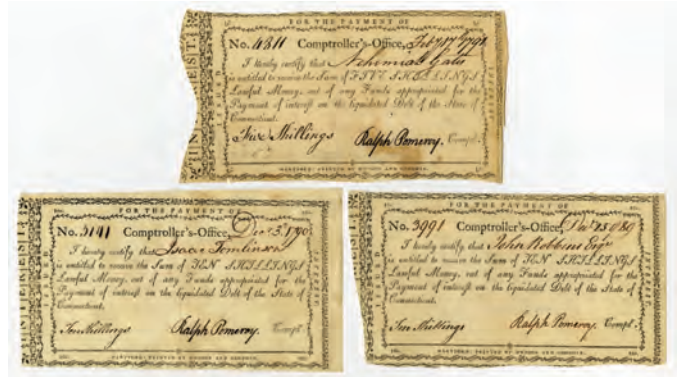 FOR THE PAYMENT OF
No. 4811 Comptroller's-Office, Feby 17th 1791
I hereby certify that Nehimiah Gates
is entitled to receive the Sum of FIVE SHILLINGS
Lawful Money, out of any Funds appropriated for the
Payment of interest on the liquidated Debt of the State of
Connecticut.
Five Shillings Ralph Pomeroy. Compt.
HARTFORD: PRINTED BY HUDSON AND GOODWIN.
INTEREST.
FOR THE PAYMENT OF
No. 3141 Comptroller's-Office, Decr 1790
I hereby certify that Isaac Tomlinson
is entitled to receive the Sum of TEN SHILLINGS
Lawful Money, out of any Funds appropriated for the
Payment of interest on the liquidated Debt of the State of
Connecticut.
Ten Shillings Ralph Pomeroy. Compt.
HARTFORD: PRINTED BY HUDSON AND GOODWIN.
INTEREST.
FOR THE PAYMENT OF
No. 3991 Comptroller's-Office,
I hereby certify that John Robbins Esqr
is entitled to receive the Sum of TEN SHILLINGS
Lawful Money, out of any Funds appropriated for the
Payment of interest on the liquidated Debt of the State of
Connecticut.
Ten Shillings Ralph Pomeroy. Compt.
HARTFORD: PRINTED BY HUDSON AND GOODWIN.